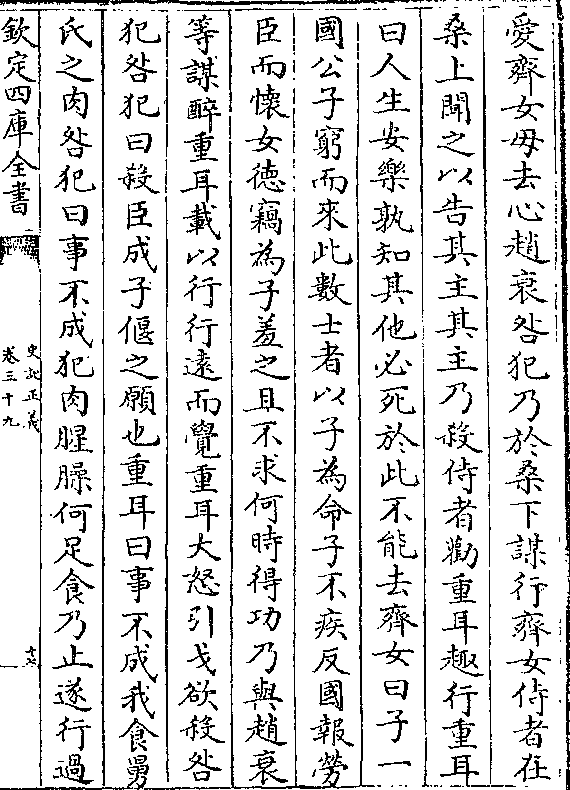 愛齊女毋去心趙衰咎犯乃於桑下謀行齊女侍者在
桑上聞之以告其主其主乃殺侍者勸重耳趣行重耳
曰人生安樂孰知其他必死於此不能去齊女曰子一
國公子窮而來此數士者以子為命子不疾反國報勞
臣而懷女徳竊為子羞之且不求何時得功乃與趙衰
等謀醉重耳載以行行逺而覺重耳大怒引戈欲殺咎
犯咎犯曰殺臣成子偃之願也重耳曰事不成我食舅
氏之肉咎犯曰事不成犯肉腥臊何足食乃止遂行過
欽定四庫全書
史記正義
卷三十九